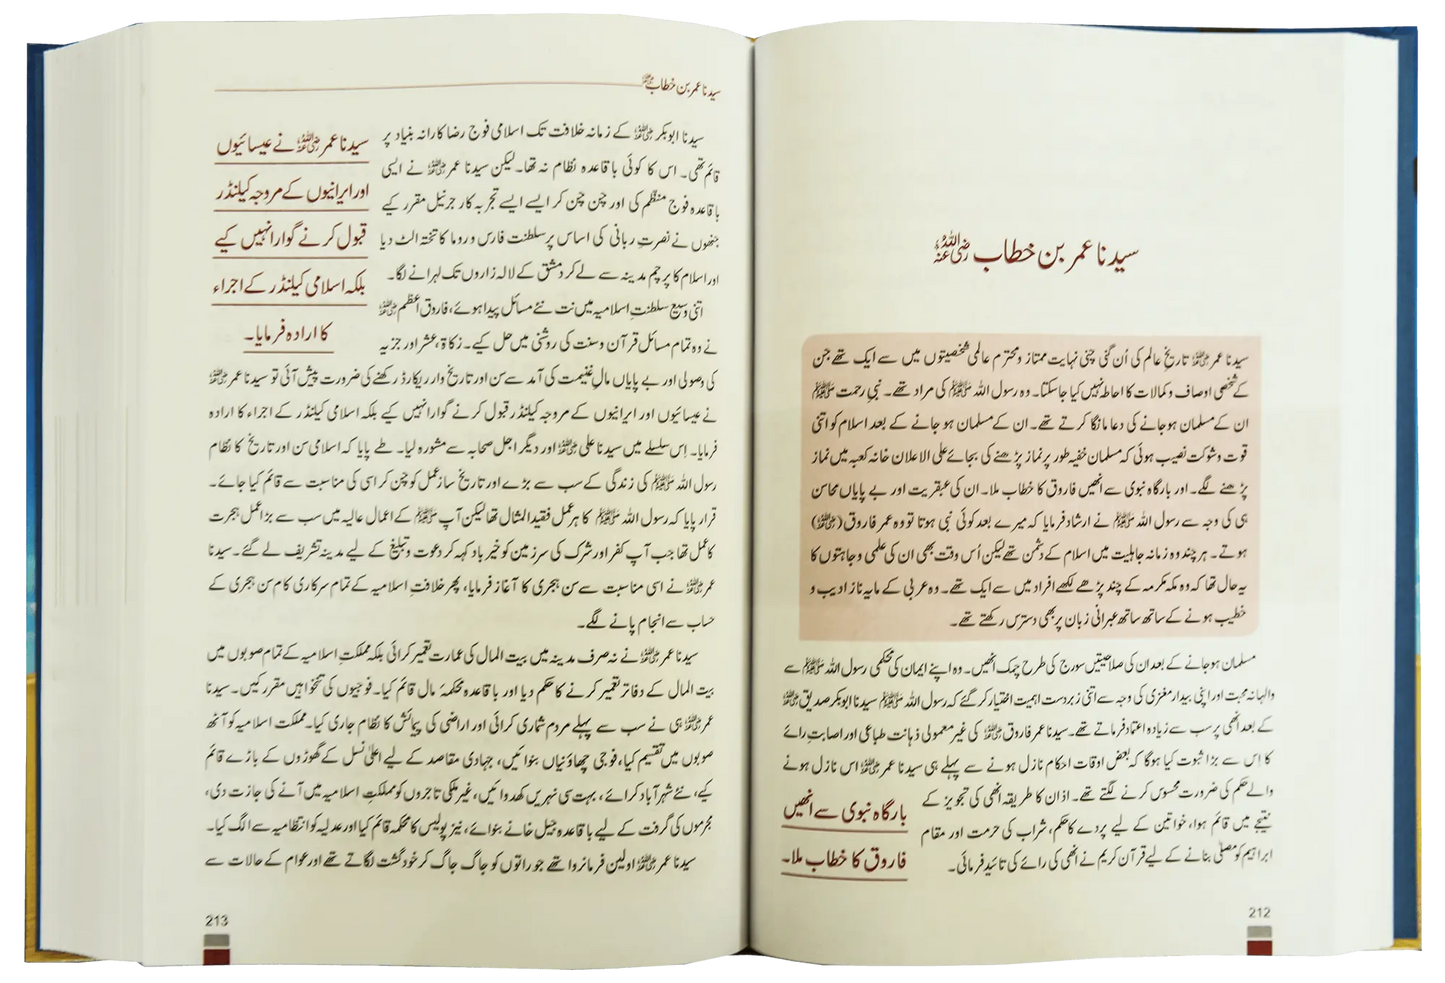 سیدنا عمر بن خطاب رضی اللہ عنہ
سیدنا عمر رضی اللہ عنہ تاریخِ عالم کی اُن گنی چنی نہایت ممتاز و محترم عالمی شخصیتوں میں سے ایک تھے جن
کے شخصی اوصاف و کمالات کا احاطہ نہیں کیا جاسکتا۔ وہ رسول اللہ ﷺ کی مراد تھے۔ نبیِ رحمت ﷺ
ان کے مسلمان ہوجانے کی دعا مانگا کرتے تھے۔ ان کے مسلمان ہو جانے کے بعد اسلام کو اتنی
قوت و شوکت نصیب ہوئی کہ مسلمان خفیہ طور پر نماز پڑھنے کی بجائے علی الاعلان خانہ کعبہ میں نماز
پڑھنے لگے۔ اور بارگاہ نبوی سے انھیں فاروق کا خطاب ملا۔ ان کی عبقریت اور بے پایاں محاسن
ہی کی وجہ سے رسول اللہ ﷺ نے ارشاد فرمایا کہ میرے بعد کوئی نبی ہوتا تو وہ عمر فاروق (رضی اللہ عنہ)
ہوتے۔ ہر چند وہ زمانہ جاہلیت میں اسلام کے دشمن تھے لیکن اُس وقت بھی ان کی علمی وجاہتوں کا
یہ حال تھا کہ وہ مکہ مکرمہ کے چند پڑھے لکھے افراد میں سے ایک تھے۔ وہ عربی کے مایہ ناز ادیب و
خطیب ہونے کے ساتھ ساتھ عبرانی زبان پر بھی دسترس رکھتے تھے۔
مسلمان ہوجانے کے بعد ان کی صلاحیتیں سورج کی طرح چمک اٹھیں۔ وہ اپنے ایمان کی محکمی رسول اللہ ﷺ سے
والہانہ محبت اور اپنی بیدار مغزی کی وجہ سے اتنی زبردست اہمیت اختیار کر گئے کہ رسول اللہ ﷺ سیدنا ابوبکر صدیق رضی اللہ عنہ
کے بعد انھی پر سب سے زیادہ اعتماد فرماتے تھے۔ سیدنا عمر فاروق رضی اللہ عنہ کی غیر معمولی ذہانت طباعی اور اصابتِ رائے
کا اس سے بڑا ثبوت کیا ہوگا کہ بعض اوقات احکام نازل ہونے سے پہلے ہی سیدنا عمر رضی اللہ عنہ اس نازل ہونے
والے حکم کی ضرورت محسوس کرنے لگتے تھے۔ اذان کا طریقہ انھی کی تجویز کے
نتیجے میں قائم ہوا، خواتین کے لیے پردے کا حکم، شراب کی حرمت اور مقام
ابراہیم کو مصلّٰی بنانے کے لیے قرآن کریم نے انھی کی رائے کی تائید فرمائی۔
بارگاہ نبوی سے انھیں
فاروق کا خطاب ملا۔
212
سیدنا عمر بن خطاب رضی اللہ عنہ
سیدنا ابوبکر رضی اللہ عنہ کے زمانہ خلافت تک اسلامی فوج رضا کارانہ بنیاد پر
قائم تھی۔ اس کا کوئی باقاعدہ نظام نہ تھا۔ لیکن سیدنا عمر رضی اللہ عنہ نے ایسی
باقاعدہ فوج منظم کی اور چن چن کر ایسے ایسے تجربہ کار جرنیل مقرر کیے
جنھوں نے نصرتِ ربانی کی اساس پر سلطنت فارس و روما کا تختہ الٹ دیا
اور اسلام کا پرچم مدینہ سے لے کر دمشق کے لالہ زاروں تک لہرانے لگا۔
اتنی وسیع سلطنتِ اسلامیہ میں نت نئے مسائل پیدا ہوئے، فاروق اعظم رضی اللہ عنہ
نے وہ تمام مسائل قرآن و سنت کی روشنی میں حل کیے۔ زکاۃ، عشر اور جزیہ
سیدنا عمر رضی اللہ عنہ نے عیسائیوں
اور ایرانیوں کے مروجہ کیلنڈر
قبول کرنے گوارا نہیں کیے
بلکہ اسلامی کیلنڈر کے اجراء
کا ارادہ فرمایا۔
کی وصولی اور بے پایاں مالِ غنیمت کی آمد سے سن اور تاریخ وار ریکارڈ رکھنے کی ضرورت پیش آئی تو سیدنا عمر رضی اللہ عنہ
نے عیسائیوں اور ایرانیوں کے مروجہ کیلنڈر قبول کرنے گوارا نہیں کیے بلکہ اسلامی کیلنڈر کے اجراء کا ارادہ
فرمایا۔ اِس سلسلے میں سیدنا علی رضی اللہ عنہ اور دیگر اجل صحابہ سے مشورہ لیا۔ طے پایا کہ اسلامی سن اور تاریخ کا نظام
رسول اللہ ﷺ کی زندگی کے سب سے بڑے اور تاریخ ساز عمل کو چن کر اسی کی مناسبت سے قائم کیا جائے۔
قرار پایا کہ رسول اللہ ﷺ کا ہر عمل فقید المثال تھا لیکن آپ ﷺ کے اعمال عالیہ میں سب سے بڑا عمل ہجرت
کا عمل تھا جب آپ کفر اور شرک کی سرزمین کو خیر باد کہہ کر دعوت و تبلیغ کے لیے مدینہ تشریف لے گئے۔ سیدنا
عمر رضی اللہ عنہ نے اسی مناسبت سے سن ہجری کا آغاز فرمایا، پھر خلافتِ اسلامیہ کے تمام سرکاری کام سن ہجری کے
حساب سے انجام پانے لگے۔
سیدنا عمر رضی اللہ عنہ نے نہ صرف مدینہ میں بیت المال کی عمارت تعمیر کرائی بلکہ مملکتِ اسلامیہ کے تمام صوبوں میں
بیت المال کے دفاتر تعمیر کرنے کا حکم دیا اور باقاعدہ محکمۂ مال قائم کیا۔ فوجیوں کی تنخواہیں مقرر کیں۔ سیدنا
عمر رضی اللہ عنہ ہی نے سب سے پہلے مردم شماری کرائی اور اراضی کی پیمائش کا نظام جاری کیا۔ مملکت اسلامیہ کو آٹھ
صوبوں میں تقسیم کیا، فوجی چھاؤنیاں بنوائیں، جہادی مقاصد کے لیے اعلیٰ نسل کے گھوڑوں کے باڑے قائم
کیے، نئے شہر آباد کرائے، بہت سی نہریں کھدوائیں، غیر ملکی تاجروں کو مملکتِ اسلامیہ میں آنے کی جازت دی،
مجرموں کی گرفت کے لیے باقاعدہ جیل خانے بنوائے، نیز پولیس کا محکمہ قائم کیا اور عدلیہ کو انتظامیہ سے الگ کیا۔
سیدنا عمر رضی اللہ عنہ اولین فرمانروا تھے جو راتوں کو جاگ جاگ کر خود گشت لگاتے تھے اور عوام کے حالات سے
213